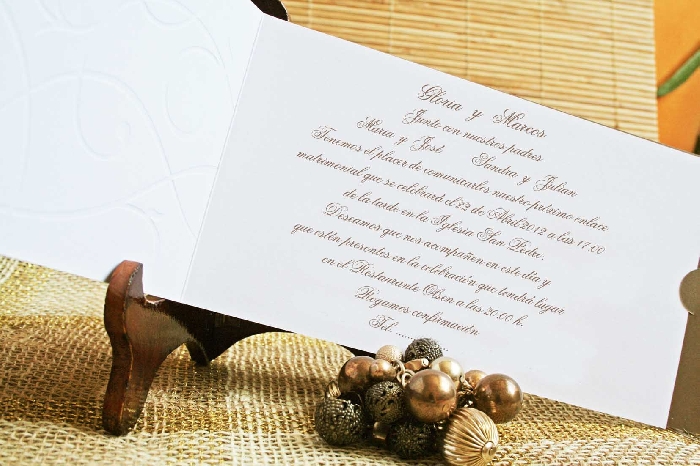 Gloria y Marcos
Junto con nuestros padres
Maria y José Sandra y Julian
Tenemos el placer de comunicarles nuestro próximo enlace
matrimonial que se celebrará el 22 de Abril 2012 a las 17:00
de la tarde en la Iglesia San Pedro.
Deseamos que nos acompañen en este día y
que estén presentes en la celebración que tendrá lugar
en el Restaurante Olsen a las 20.00 h.
Rogamos confirmación
Tel. ..............